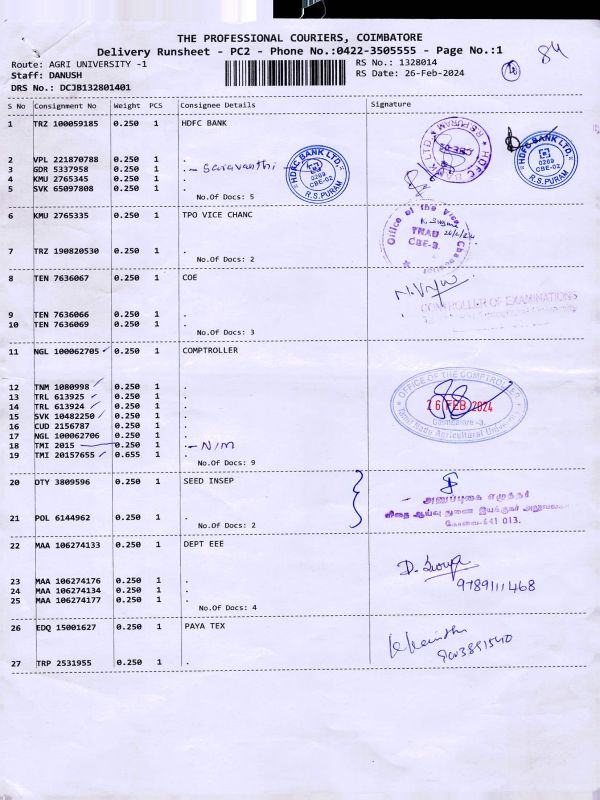 THE PROFESSIONAL COURIERS, COIMBATORE
Delivery Runsheet - PC2 - Phone No.:0422-3505555 - Page No.:1
84
Route: AGRI UNIVERSITY -1
RS No.: 1328014
Staff: DANUSH
RS Date: 26-Feb-2024
DRS No.: DCJB132801401
S No Consignment No Weight PCS Consignee Details Signature
1 TRZ 100059185 0.250 1 HDFC BANK
2 VPL 221870788 0.250 1 .
3 GDR 5337958 0.250 1 . - Saravanthi
4 KMU 2765345 0.250 1 .
5 SVK 65097808 0.250 1 .
No.Of Docs: 5
HDFC BANK LTD.
0269
CBE-02
R.S.PURAM
HDFC
R.S.PURAM
HDFC BANK LTD.
0269
CBE-02
R.S.PURAM
6 KMU 2765335 0.250 1 TPO VICE CHANC
7 TRZ 190820530 0.250 1 .
No.Of Docs: 2
Office of the Vice
TNAU 26/2/24
CBE-3.
8 TEN 7636067 0.250 1 COE
9 TEN 7636066 0.250 1 .
10 TEN 7636069 0.250 1 .
No.Of Docs: 3
CONTROLLER OF EXAMINATIONS
11 NGL 100062705 0.250 1 COMPTROLLER
12 TNM 1080998 0.250 1 .
13 TRL 613925 0.250 1 .
14 TRL 613924 0.250 1 .
15 SVK 10482250 0.250 1 .
16 CUD 2156787 0.250 1 .
17 NGL 100062706 0.250 1 .
18 TMI 2015 0.250 1 . - N/M
19 TMI 20157655 0.655 1 .
No.Of Docs: 9
OFFICE OF THE COMPTROLLER
26 FEB 2024
Coimbatore -3.
Tamil Nadu Agricultural University
20 DTY 3809596 0.250 1 SEED INSEP
21 POL 6144962 0.250 1 .
No.Of Docs: 2
அனுப்புகை எழுத்தர்
விதை ஆய்வு துணை இயக்குநர் அலுவலகம்
கோவை-641 013.
22 MAA 106274133 0.250 1 DEPT EEE
23 MAA 106274176 0.250 1 .
24 MAA 106274134 0.250 1 .
25 MAA 106274177 0.250 1 .
No.Of Docs: 4
9789111468
26 EDQ 15001627 0.250 1 PAYA TEX
27 TRP 2531955 0.250 1 .